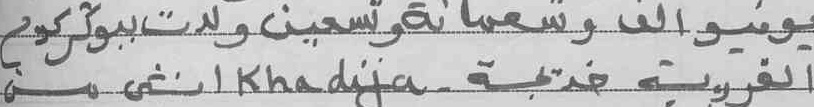 يونيو الف وتسعمائة وتسعين ولدت ببوكركوح
القروية خديجة - Khadija انثى من